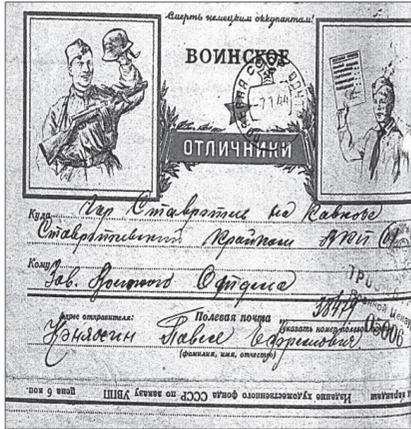 Смерть немецким оккупантам!
ВОИНСКОЕ
7 1 44
ОТЛИЧНИКИ
Куда гор Ставрополь на Кавказе
Ставропольский Крайком ВКП
Кому
Зав. Военного Отдела
Адрес отправителя: Полевая почта 38474
Указать номер полевой
Павел Ефремович
(фамилия, имя, отчество)
05006
Издание художественного фонда СССР по заказу УВПП цена 6 коп.